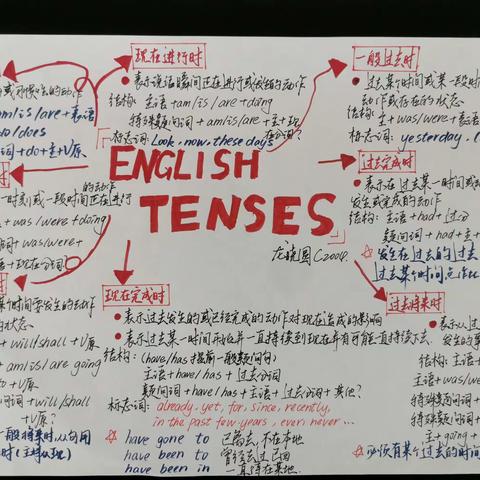 现在进行时
•表示说话瞬间正在进行或发生的动作
结构: 主语+am/is/are+doing
特殊疑问词+am/is/are+主+现在分词?
标志词: Look、now、these days
一般过去时
•过去某个时间或某一段时
动作或存在的状态
结构:
主+was/were+表语
标志词: yesterday、l
am/is/are+表语
do/does
词+do+主+V原
ENGLISH
TENSES
龙镜圆 C2004.
的动作
一时刻或一段时间正在进行
+was/were+doing
词+was/were+
+现在分词?
过去完成时
•表示在过去某一时间或
发生或完成的动作
结构: 主语+had+过分
疑问词+had+主+
☆发生在过去的过去
过去某个时间
某个时间要发生的动作
的状态
+will/shall+V原
+am/is/are going
to+V原
问词+will/shall
+V原?
一般将来时,从句用
时(主将从现)
现在完成时
•表示过去发生的或已经完成的动作对现在造成的影响
•表示过去某一时间开始并一直持续到现在并有可能一直持续下去.
结构: (have/has提前一般疑问句)
主语+have/has+过去分词
疑问词+have/has+主语+过去分词+其他?
标志词: already、yet、for、since、recently、
in the past few years、ever、never...
☆have gone to 已离去,不在本地
have been to 曾经去过已回
have been in 一直待在某地.
过去将来时
•表示从过
结构: 主语+
主语+was/we
特殊疑问词+
特殊疑问词+
主+going+
☆必须有某个过去的时间